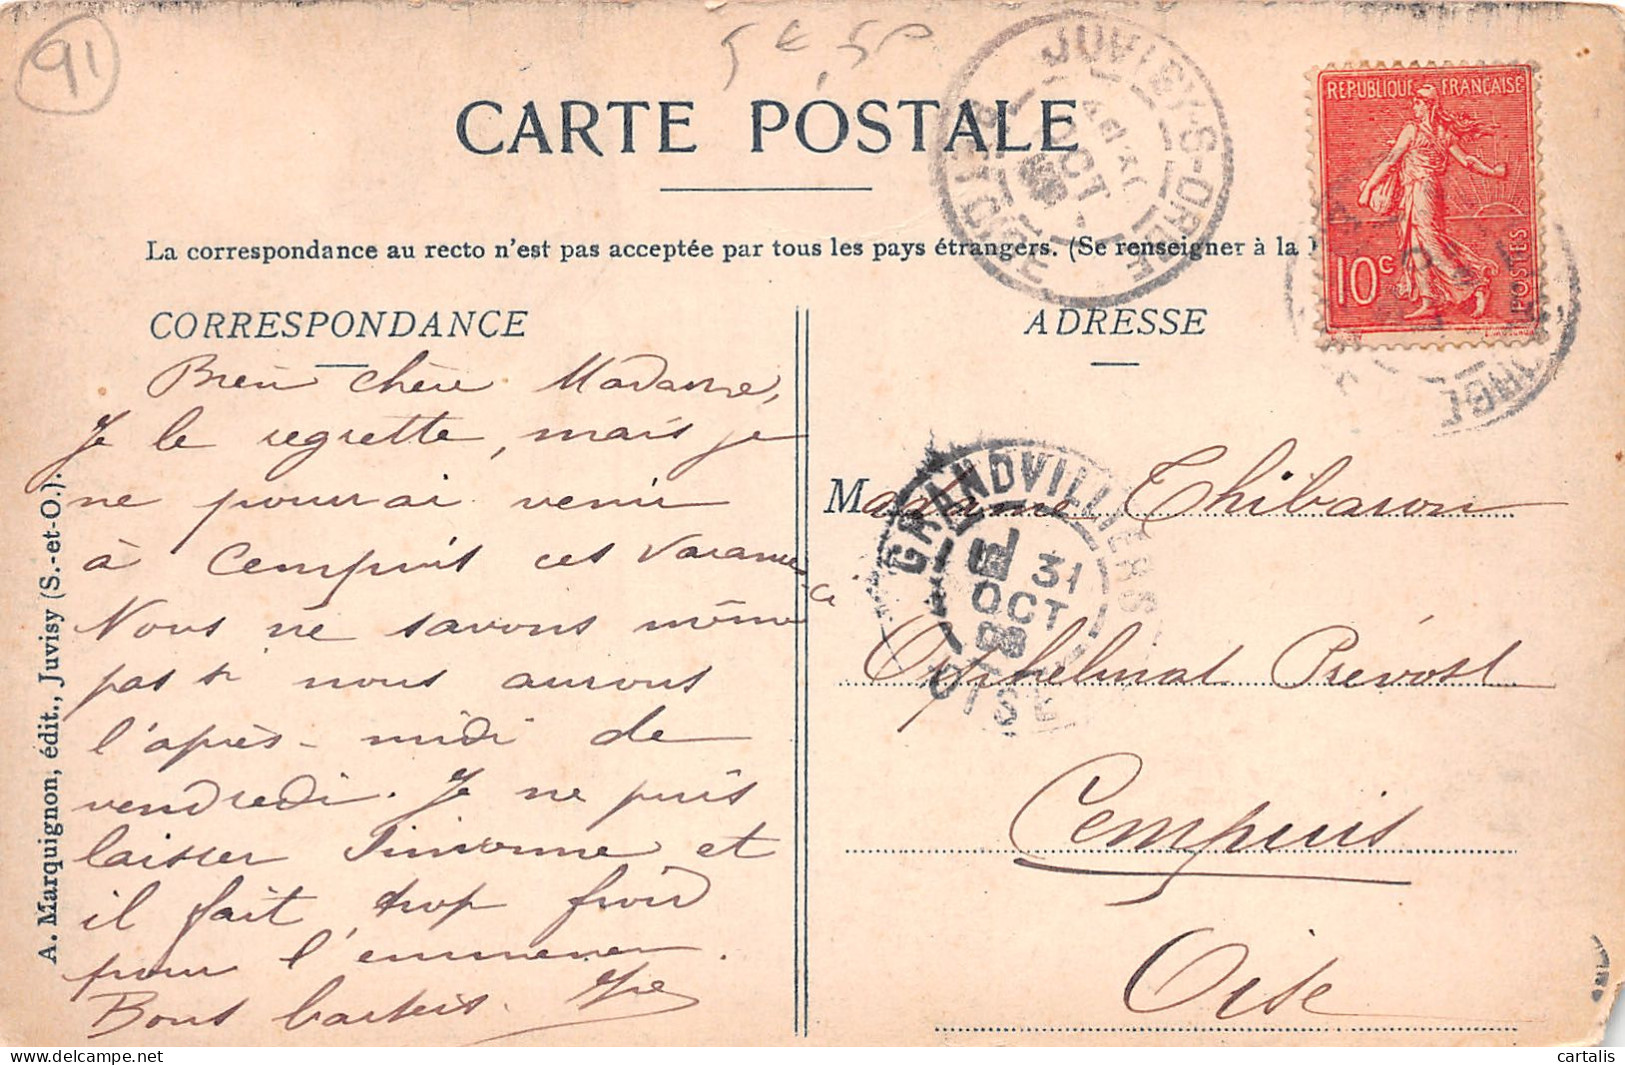 91
CARTE POSTALE
JUVISY-S-ORGE
OCT
REPUBLIQUE FRANÇAISE
10c
POSTES
La correspondance au recto n'est pas acceptée par tous les pays étrangers. (Se renseigner à la
CORRESPONDANCE
ADRESSE
Bien chère Madame,
Je le regrette, mais je
ne pourrai venir
à Cempuis ces vacances-ci
Nous ne savons même
pas si nous aurons
l'après-midi de
vendredi. Je ne puis
laisser et
il fait trop froid
pour l'emmener.
Bons baisers.
Madame Thibaron
Orphelinat Prévost
Cempuis
Oise
GRANDVILLIERS
31
OCT
08
OISE
A. Marquignon, édit., Juvisy (S.-et-O.).
cartalis